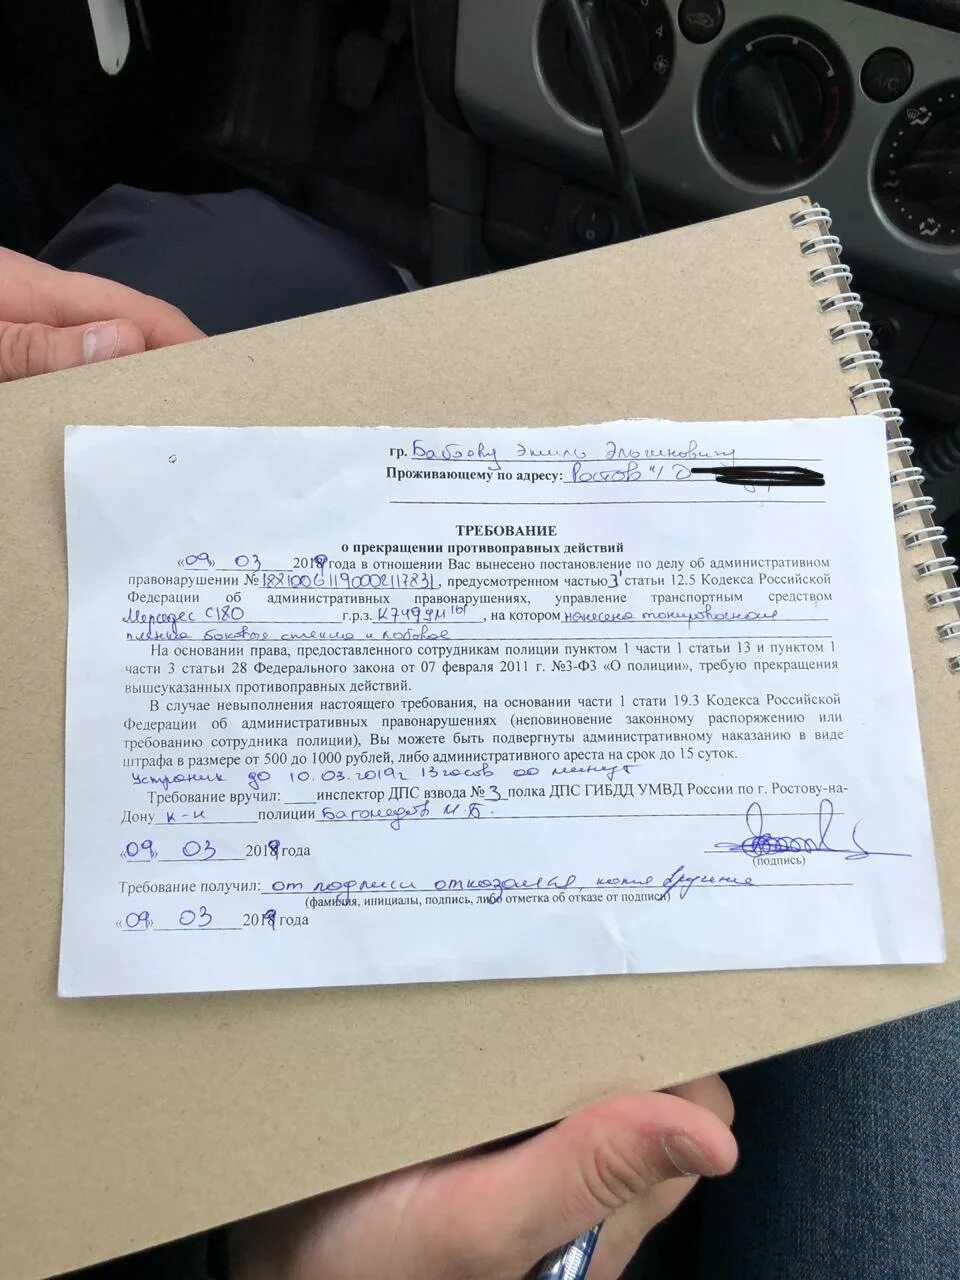 гр. Бабаеву Эмилю Эльчиновичу
Проживающему по адресу: Ростов н/Д
ТРЕБОВАНИЕ
о прекращении противоправных действий
«09» 03 2019 года в отношении Вас вынесено постановление по делу об административном
правонарушении № 18810061190002117831, предусмотренном частью 3¹ статьи 12.5 Кодекса Российской
Федерации об административных правонарушениях, управление транспортным средством
Мерседес С180 г.р.з. К749УМ161, на котором нанесена тонировочная
пленка боковые стекла и лобовое
На основании права, предоставленного сотрудникам полиции пунктом 1 части 1 статьи 13 и пунктом 1
части 3 статьи 28 Федерального закона от 07 февраля 2011 г. №3-ФЗ «О полиции», требую прекращения
вышеуказанных противоправных действий.
В случае невыполнения настоящего требования, на основании части 1 стати 19.3 Кодекса Российской
Федерации об административных правонарушениях (неповиновение законному распоряжению или
требованию сотрудника полиции), Вы можете быть подвергнуты административному наказанию в виде
штрафа в размере от 500 до 1000 рублей, либо административного ареста на срок до 15 суток.
Устраник до 10.03.2019г 13 часов 00 минут
Требование вручил: инспектор ДПС взвода № 3 полка ДПС ГИБДД УМВД России по г. Ростову-на-
Дону к-н полиции Багомедов М.Б.
«09» 03 2019 года
(подпись)
Требование получил: от подписи отказался, копия вручена
(фамилия, инициалы, подпись, либо отметка об отказе от подписи)
«09» 03 2019 года
A/C
4